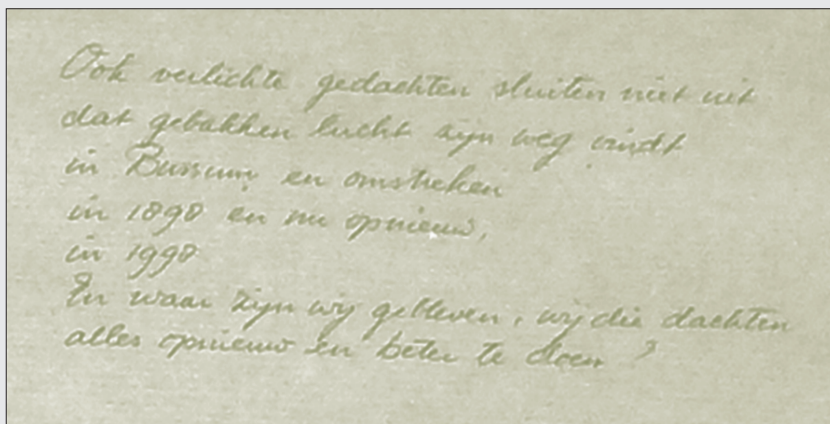 Ook verlichte gedachten sluiten niet uit
dat gebakken lucht zijn weg vindt
in Bussum en omstreken
in 1898 en nu opnieuw,
in 1998
En waar zijn wij gebleven, wij die dachten
alles opnieuw en beter te doen?